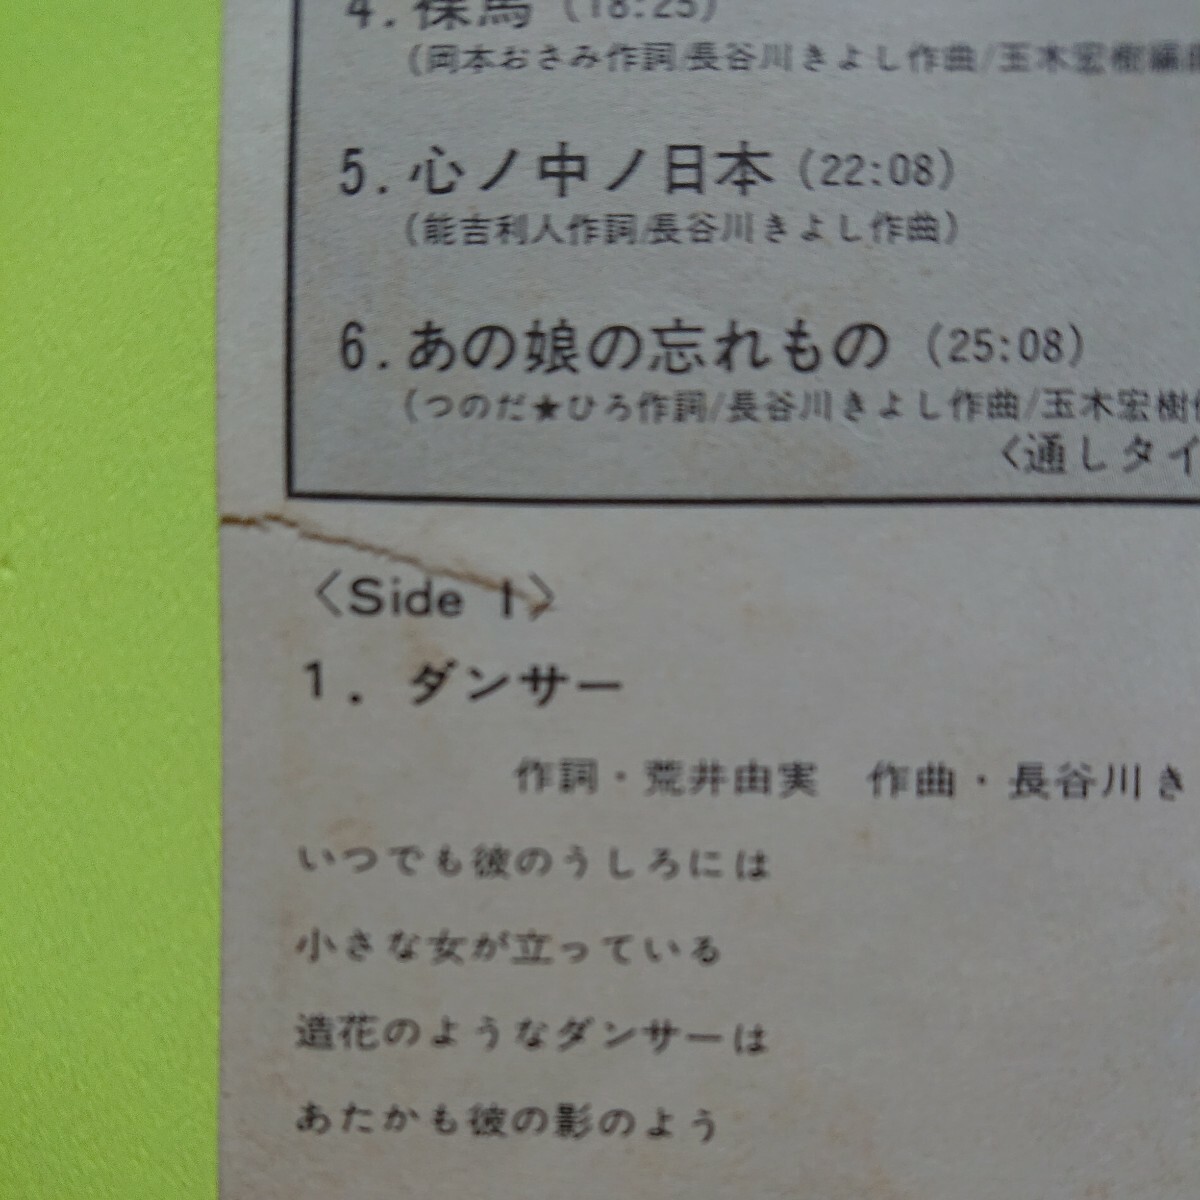 4. 裸馬 (18:25)
(岡本おさみ作詞/長谷川きよし作曲/玉木宏樹編曲
5. 心ノ中ノ日本 (22:08)
(能吉利人作詞/長谷川きよし作曲)
6. あの娘の忘れもの (25:08)
(つのだ★ひろ作詞/長谷川きよし作曲/玉木宏樹
<通しタイ
〈Side 1〉
1. ダンサー
作詞・荒井由実 作曲・長谷川き
いつでも彼のうしろには
小さな女が立っている
造花のようなダンサーは
あたかも彼の影のよう